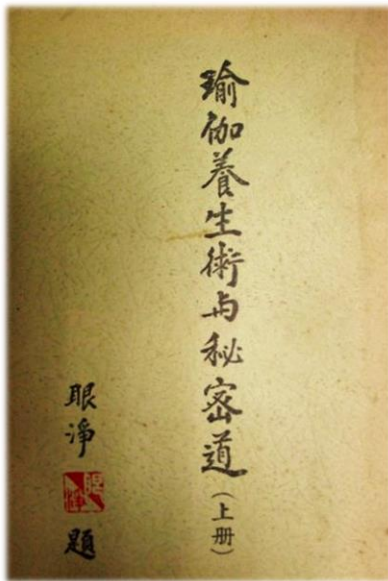 瑜伽養生術与秘密道(上册)
眼淨
眼淨
題